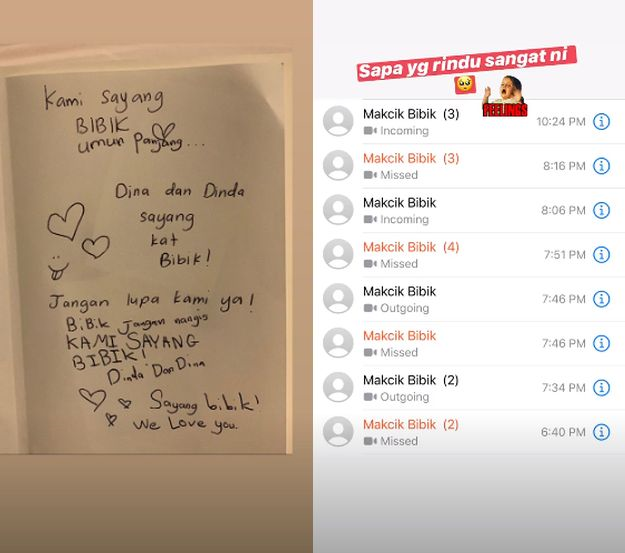 Kami sayang
BIBIK
umur panjang...
Dina dan Dinda
sayang
kat
Bibik!
Jangan lupa kami ya!
BiBik jangan nangis
KAMI SAYANG
BIBIK!
Dinda Dan Dina
Sayang bibik!
We Love you.
Sapa yg rindu sangat ni
FEELINGS
Makcik Bibik (3)
Incoming
10:24 PM
Makcik Bibik (3)
Missed
8:16 PM
Makcik Bibik
Incoming
8:06 PM
Makcik Bibik (4)
Missed
7:51 PM
Makcik Bibik
Outgoing
7:46 PM
Makcik Bibik
Missed
7:46 PM
Makcik Bibik (2)
Outgoing
7:34 PM
Makcik Bibik (2)
Missed
6:40 PM